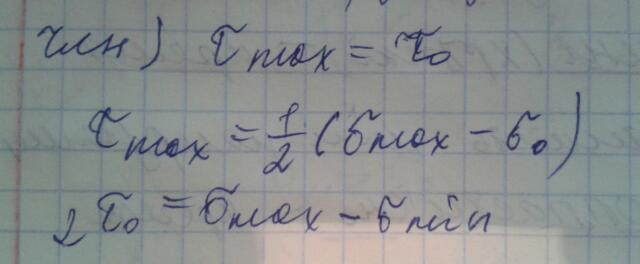 член) τmax = τ₀
τmax = 1/2 (σmax - σ₀)
2τ₀ = σmax - σmin